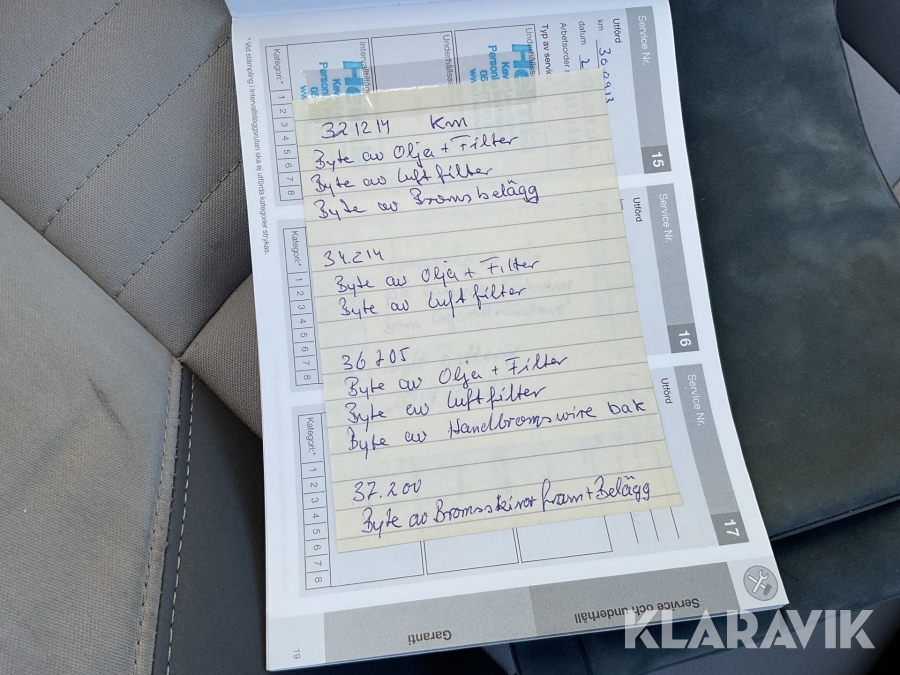 321214 Km
Byte av Olja + Filter
Byte av Luftfilter
Byte av Bromsbelägg
34.214
Byte av Olja + Filter
Byte av Luftfilter
36205
Byte av Olja + Filter
Byte av Luftfilter
Byte av Handbromswire bak
37.200
Byte av Bromsskivor fram + Belägg
Service Nr.
15
Utförd
km
datum
Arbetsorder
Typ av servic
Kategori:*
1 2 3 4 5 6 7 8
Service Nr.
16
Utförd
Kategori:*
1 2 3 4 5 6 7 8
Service Nr.
17
Utförd
Kategori:*
1 2 3 4 5 6 7 8
* Vid stämpling i intervalltilläggsrutan ska ej utförda kategorier strykas.
Service och underhåll
Garanti
19
KLARAVIK